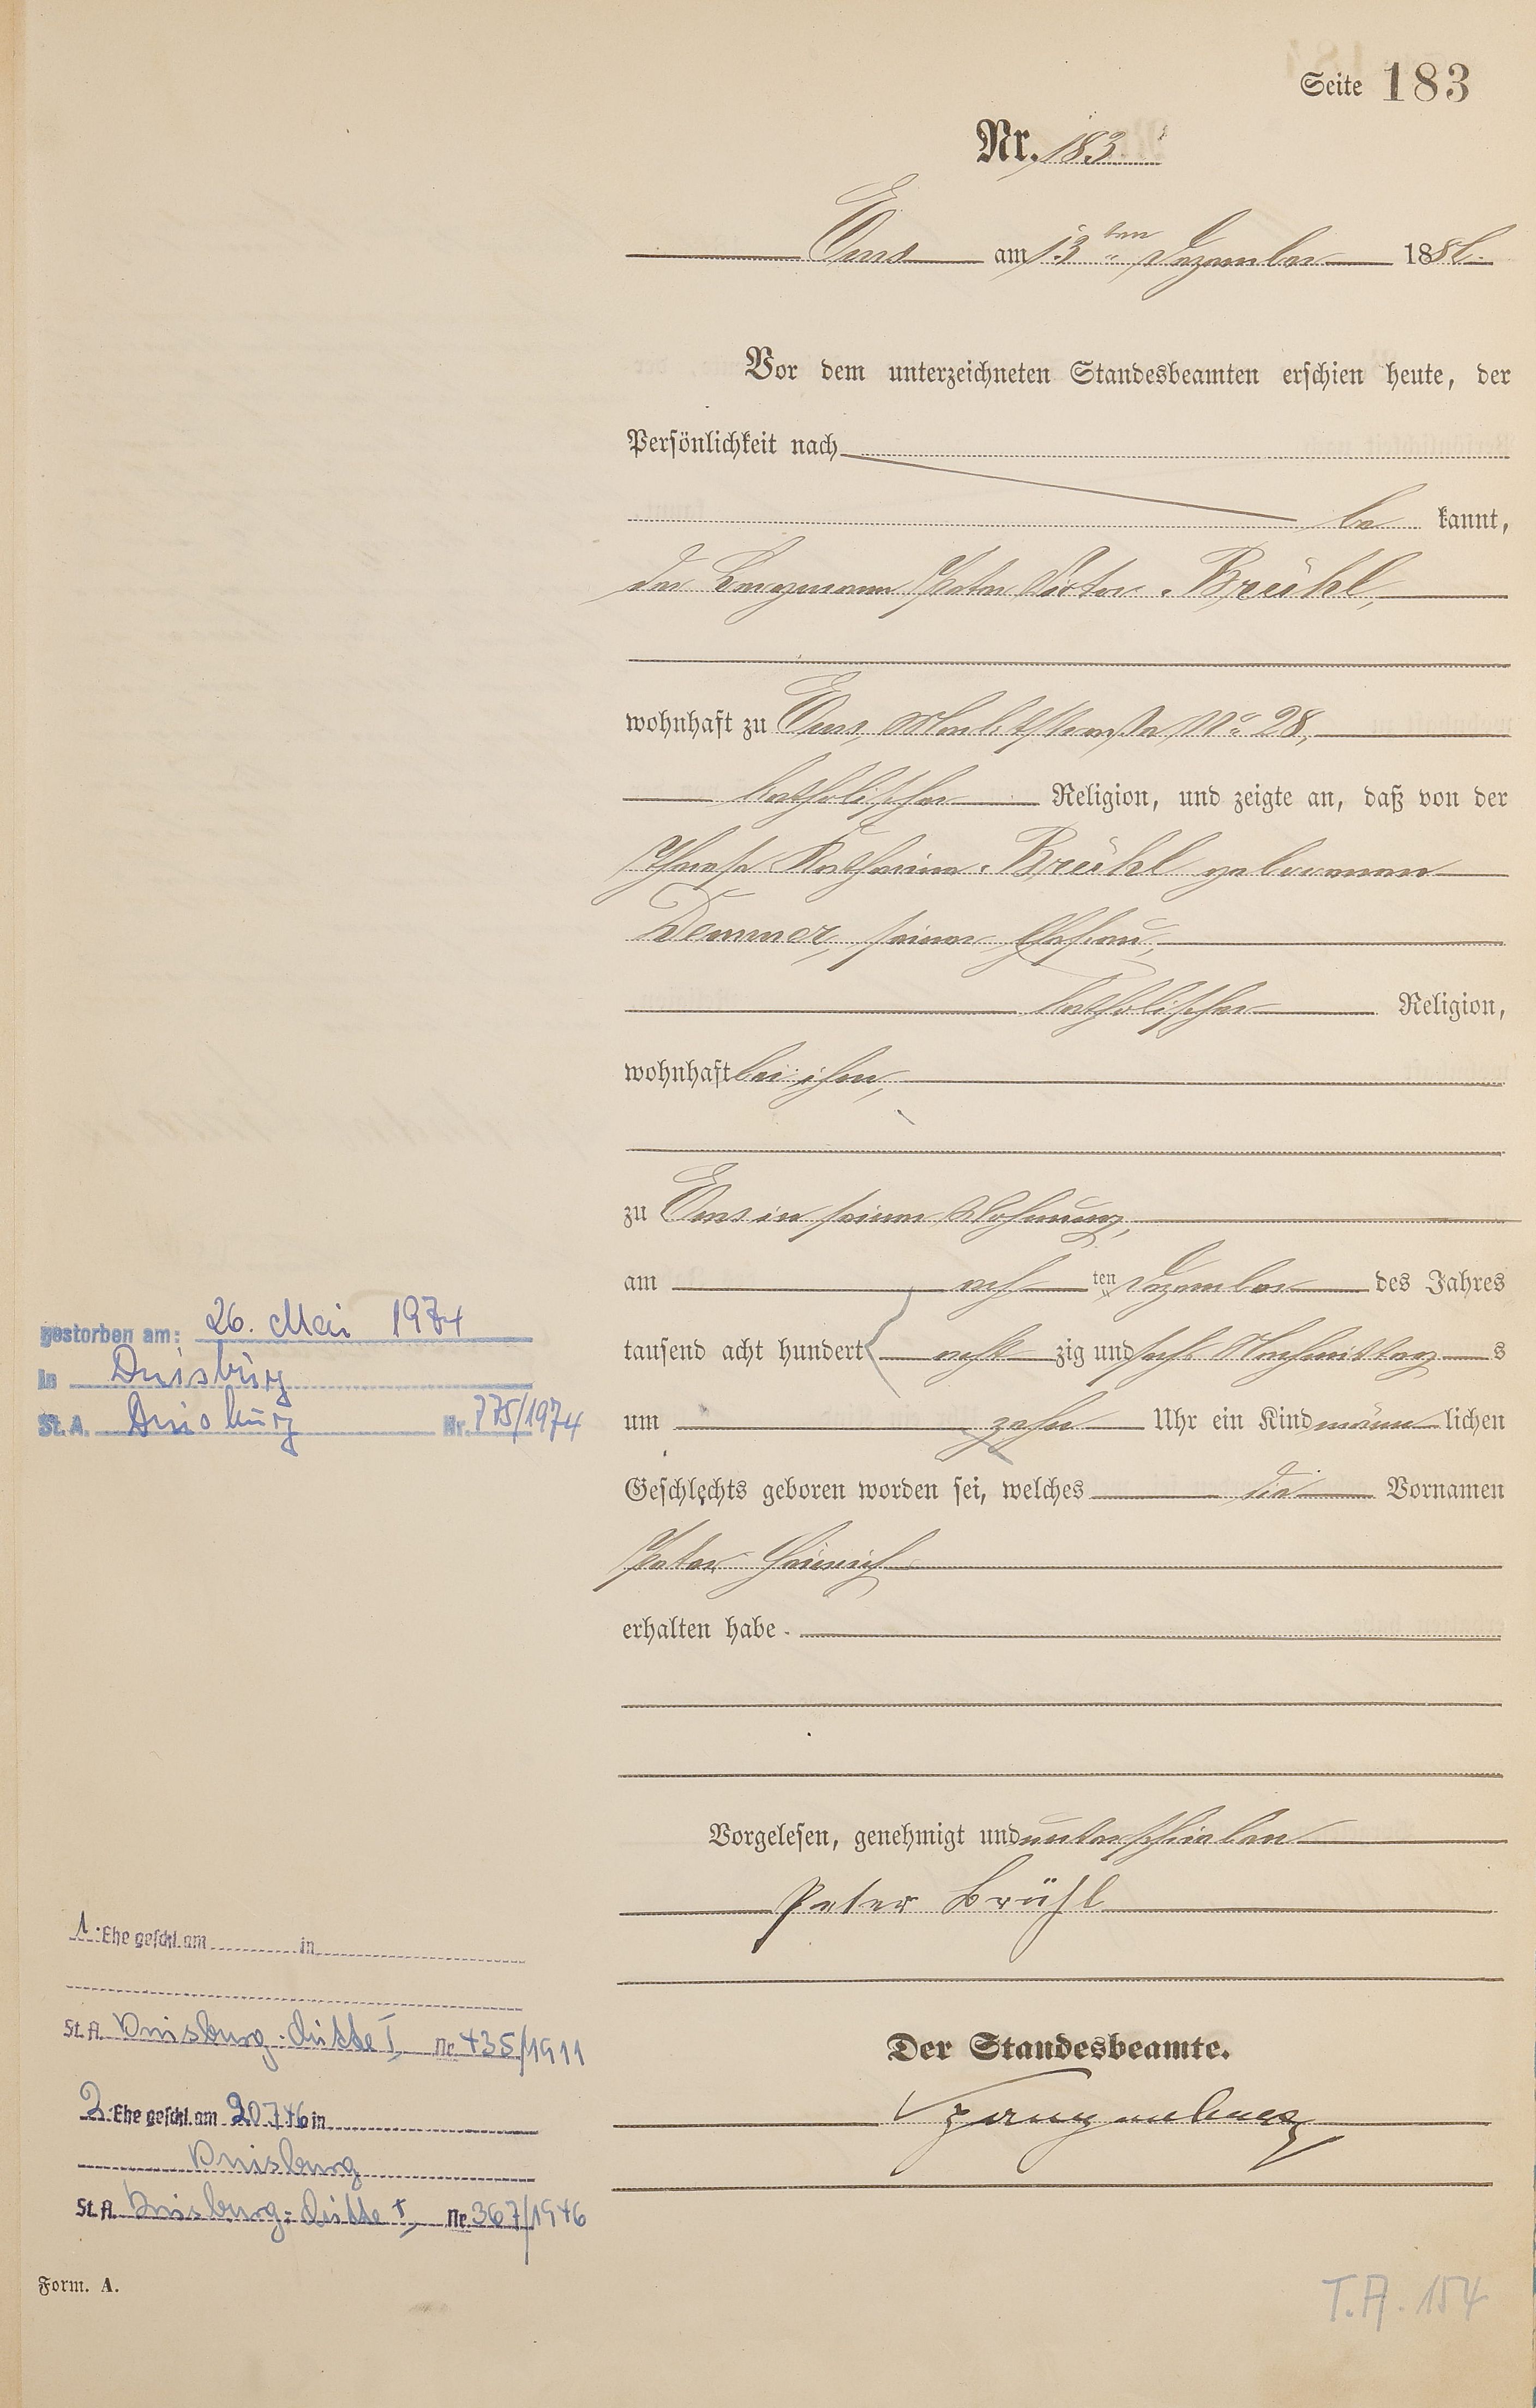 Seite 183
Nr. 183
Ems am 13ten Dezember 1886.
Vor dem unterzeichneten Standesbeamten erschien heute, der
Persönlichkeit nach
be kannt,
der Bergmann Peter Victor Brühl,
wohnhaft zu Ems, Marktstraße No 28,
katholischer Religion, und zeigte an, daß von der
Katharina Brühl geborenen
Demmer, seiner Ehefrau,
katholischer Religion,
wohnhaft bei ihm,
zu Ems in seiner Wohnung,
am ten Dezember des Jahres
tausend acht hundert acht zig und sechs Nachmittag s
um zehn Uhr ein Kind männ lichen
Geschlechts geboren worden sei, welches die Vornamen
Peter Heinrich
erhalten habe.
Vorgelesen, genehmigt und unterschrieben
Peter Brühl
Der Standesbeamte.
gestorben am: 26. Mai 1974
in Duisburg
St. A. Duisburg Nr. 775/1974
1. Ehe geschl. am in
St. A. Duisburg-Mitte I, Nr. 435/1911
2. Ehe geschl. am 20.7.46 in
Duisburg
St. A. Duisburg-Mitte I, Nr. 367/1946
Form. A.
T.A. 154